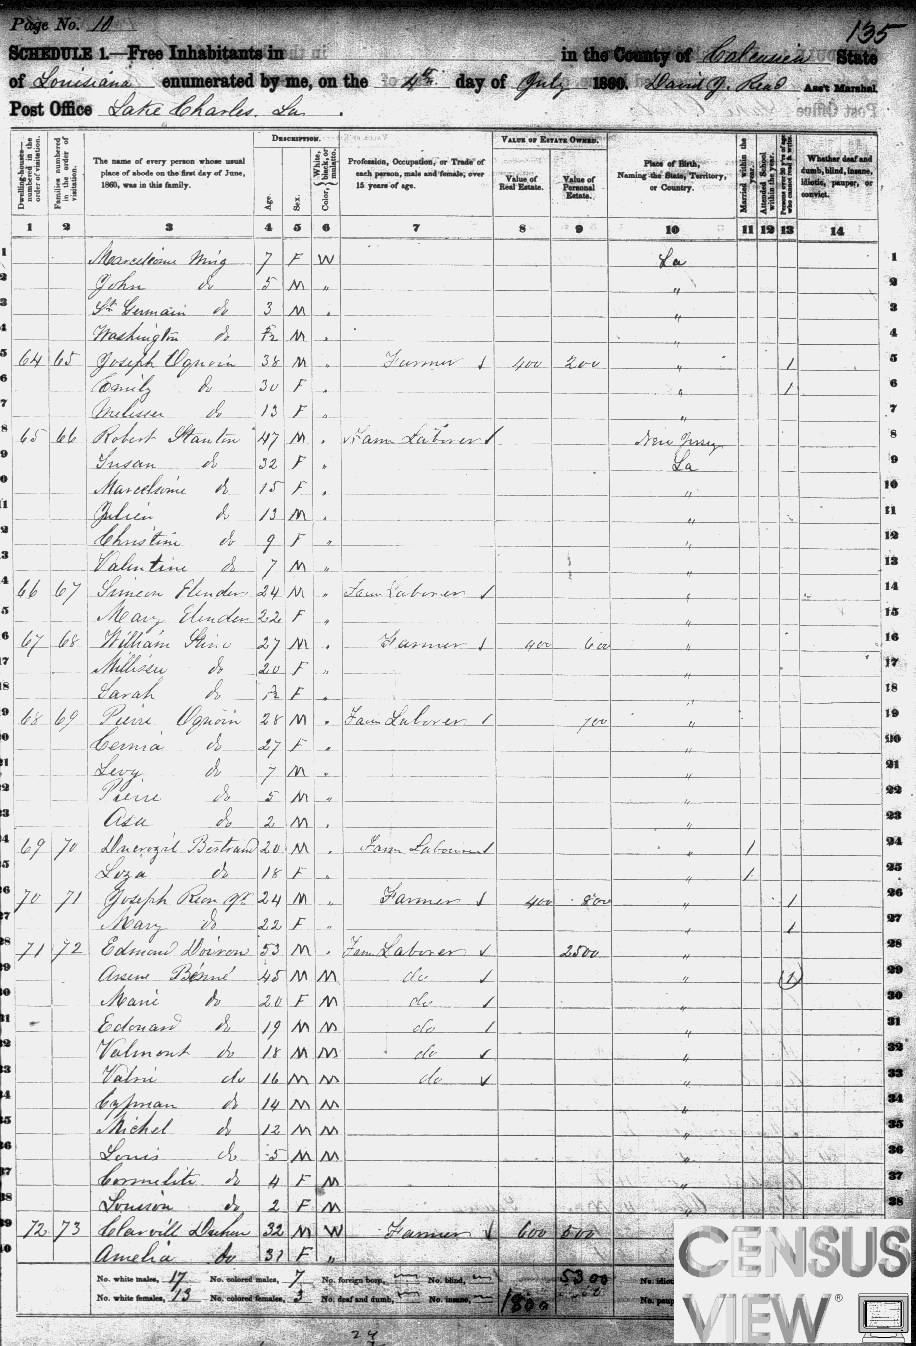 Page No. 10
135
SCHEDULE 1.—Free Inhabitants in in the County of Calcasieu State
of Louisiana enumerated by me, on the 4th day of July 1860. David J. Read Ass't Marshal.
Post Office Lake Charles, La.
Dwelling-houses—numbered in the order of visitation.
Families numbered in the order of visitation.
The name of every person whose usual place of abode on the first day of June, 1860, was in this family.
DESCRIPTION.
Age.
Sex.
Color, White, black, or mulatto.
Profession, Occupation, or Trade of each person, male and female, over 15 years of age.
VALUE OF ESTATE OWNED.
Value of Real Estate.
Value of Personal Estate.
Place of Birth, Naming the State, Territory, or Country.
Married within the year.
Attended School within the year.
Persons over 20 y'rs of age who cannot read & write.
Whether deaf and dumb, blind, insane, idiotic, pauper, or convict.
1 2 3 4 5 6 7 8 9 10 11 12 13 14
1 Ming 7 F W La 1
2 John do 5 M " " 2
3 St Germain do 3 M " " 3
4 Washington do M " " 4
5 64 65 Joseph 38 M " Farmer 400 200 " 1 5
6 Emily do 30 F " " 1 6
7 Melissa do 13 F " " 7
8 65 66 Robert Stanton 47 M " Farm Laborer New Jersey 8
9 Susan do 32 F " La 9
10 do 15 F " " 10
11 Julien do 13 M " " 11
12 Christine do 9 F " " 12
13 Valentine do 7 M " " 13
14 66 67 Simeon 24 M " Farm Laborer " 14
15 Mary 22 F " " 15
16 67 68 William 27 M " Farmer 400 600 " 16
17 do 20 F " " 17
18 Sarah do F " " 18
19 68 69 Pierre 28 M " Farm Laborer 700 " 19
20 do 27 F " " 20
21 Levy do 7 M " " 21
22 Pierre do 5 M " " 22
23 Asa do 2 M " " 23
24 69 70 Bertrand 20 M " Farm Laborer " 1 24
25 do 18 F " " 1 25
26 70 71 Joseph 24 M " Farmer 400 800 " 1 26
27 Mary do 22 F " " 1 27
28 71 72 Edmond Doiron 53 M " Farm Laborer 2500 " 28
29 Arsene 45 M M do " 1 29
30 Marie do 20 F M do " 30
31 Edouard do 19 M M do " 31
32 Valmont do 18 M M do " 32
33 do 16 M M do " 33
34 Cyprian do 14 M M " 34
35 Michel do 12 M M " 35
36 Louis do 5 M M " 36
37 do 4 F M " 37
38 do 2 F M " 38
39 72 73 32 M W Farmer 600 500
40 Amelia do 31 F "
No. white males, 17 No. colored males, 7 No. foreign born, No. blind, 5300
No. white females, 13 No. colored females, 3 No. deaf and dumb, No. insane, 1800
24
CENSUS
VIEW®